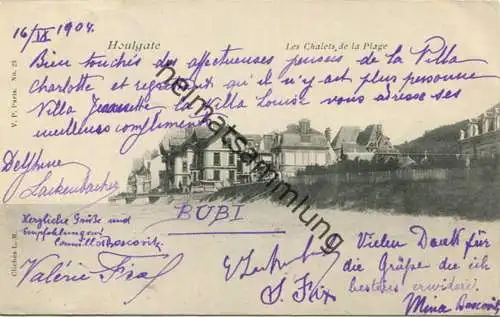 16/IX 1904.
Houlgate
Les Chalets de la Plage
V. P. Paris. No. 23
Bien touchés des affectueuses pensées de la Villa
Charlotte et regrettant qu'il n'y ait plus personne
Villa Jeannette la Villa Louise vous adresse ses
meilleurs compliments
heimatsammlung.de
Delphine
Lackenbacher
Herzliche Grüße und
Empfehlungen
Camillo Boscovitz
BUBI
Valérie
S.
Vielen Dank für
die Grüße die ich
bestens erwidere.
Mina Boscovitz
Clichés L. W.